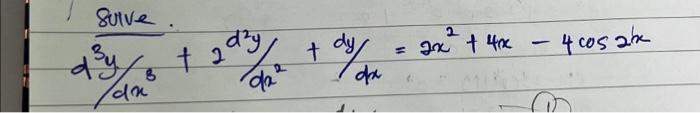 Solve.
d³y/dx³ + 2 d²y/dx² + dy/dx = 2x² + 4x - 4 cos 2x
①